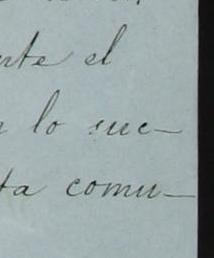 rte el
lo suc-
ta comu-